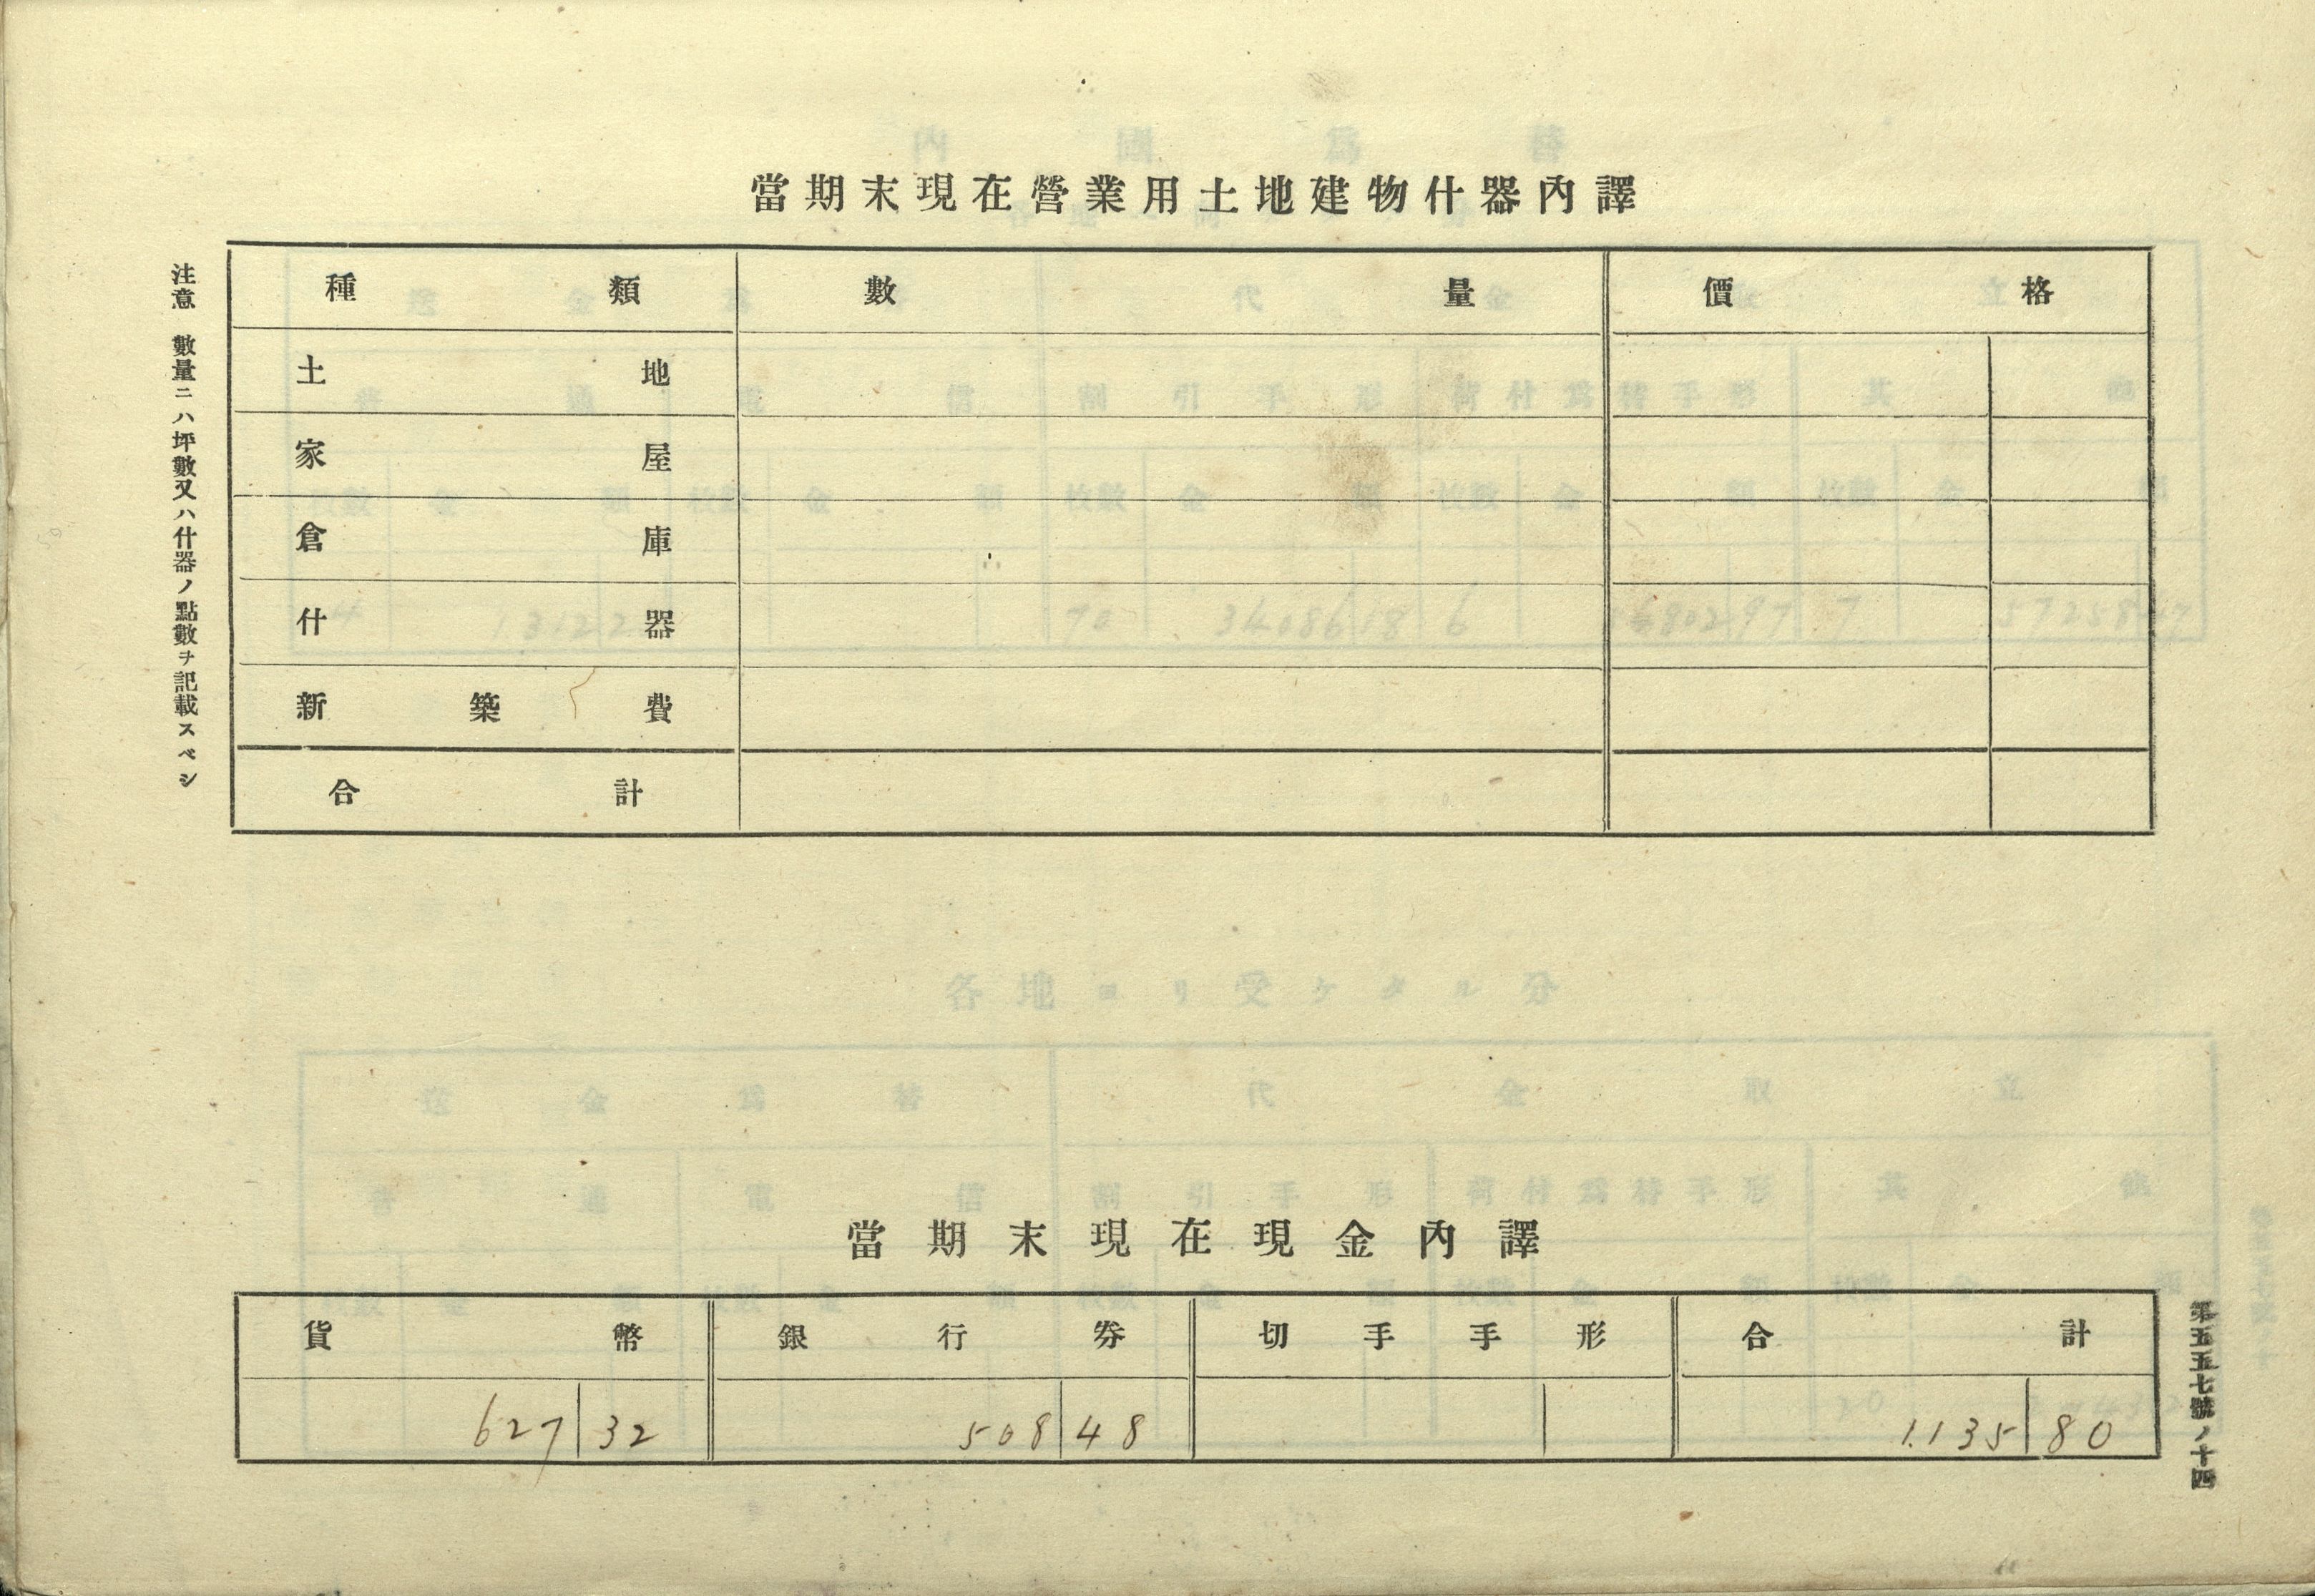 當期末現在營業用土地建物什器內譯
種類 數量 價格
土地
家屋
倉庫
什器
新築費
合計
注意 數量ニハ坪數又ハ什器ノ點數ヲ記載スベシ
當期末現在現金內譯
貨幣 銀行券 切手手形 合計
627 32 508 48 1.135 80
第五五七號ノ十四
各地ヨリ受ケタル分